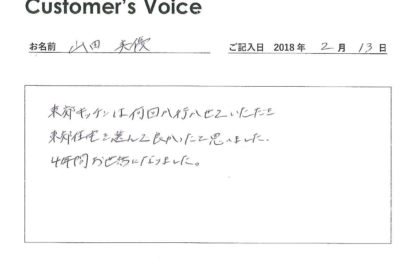 Customer's Voice
お名前 山田 英俊 ご記入日 2018 年 2 月 13 日
東邦キッチンは何回も行かせていただき
東邦住宅を選んで良かったと思いました。
4年間お世話になりました。